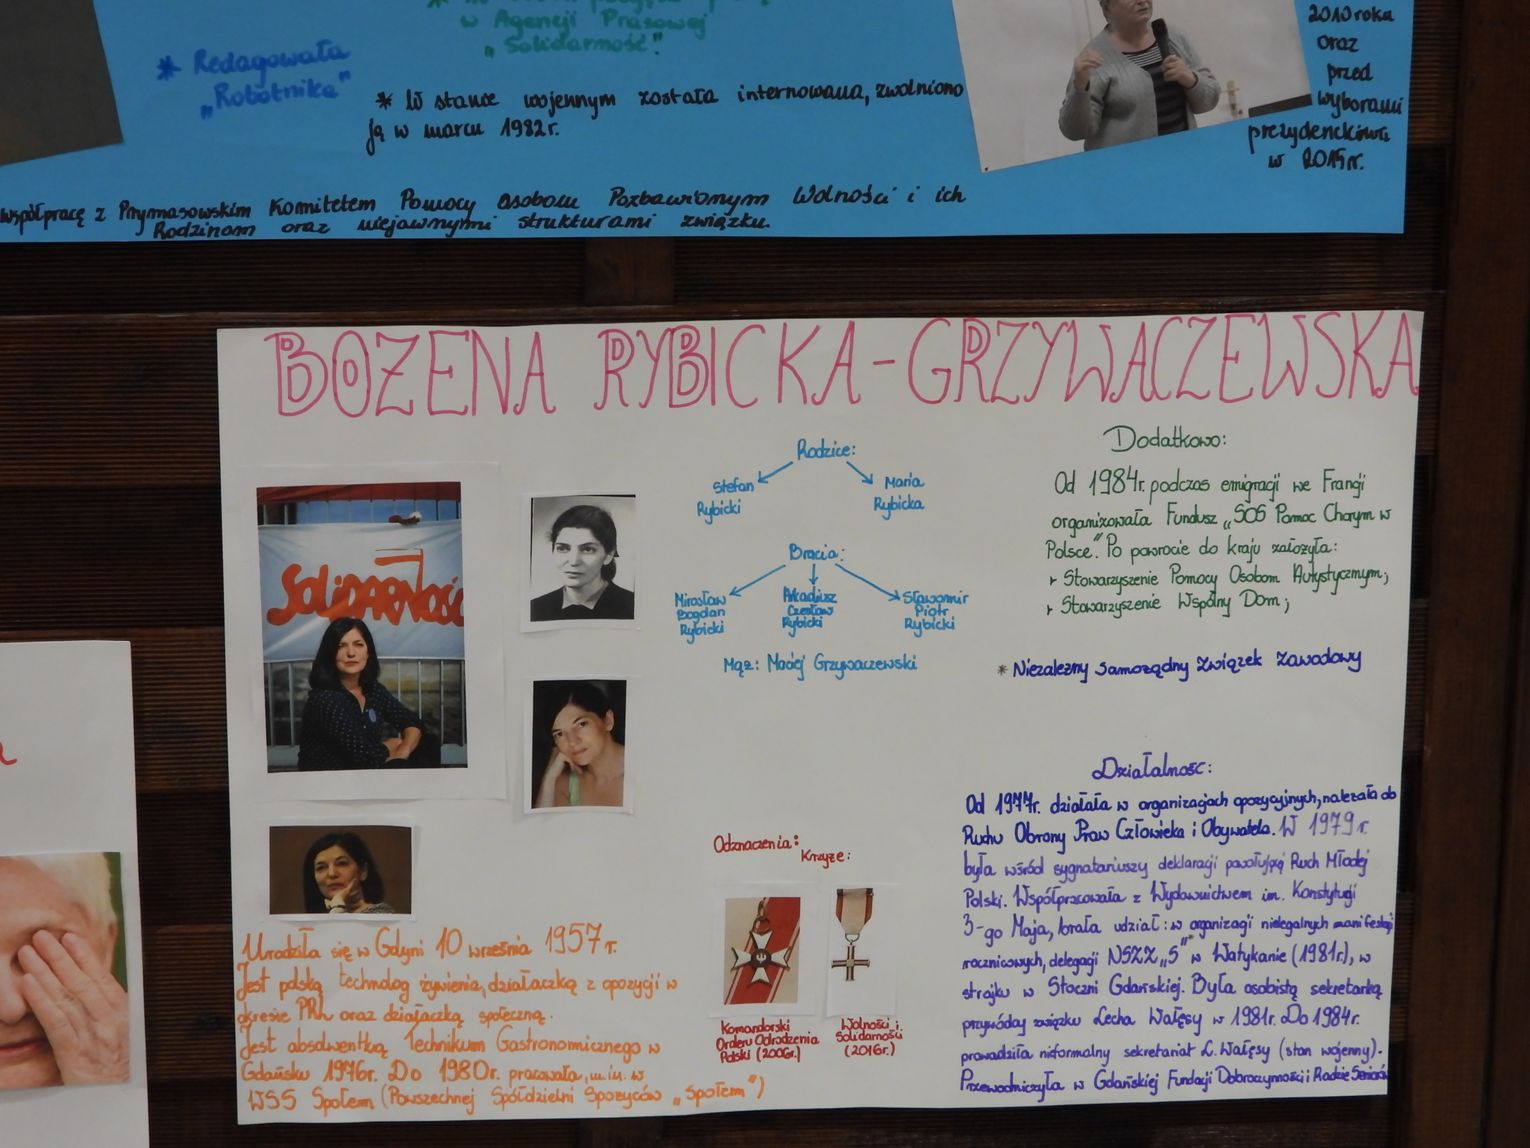 * Redagowała
„Robotnika”
w Agencji Prasowej
„Solidarność”.
* W stanie wojennym została internowana, zwolniono
ją w marcu 1982r.
współpracę z Prymasowskim Komitetem Pomocy Osobom Pozbawionym Wolności i ich
Rodzinom oraz niejawnymi strukturami związku.
2010 roku
oraz
przed
wyborami
prezydenckimi
w 2015r.
BOŻENA RYBICKA-GRZYWACZEWSKA
SOLIDARNOŚĆ
Rodzice:
Stefan
Rybicki
Maria
Rybicka
Bracia:
Mirosław
Bogdan
Rybicki
Arkadiusz
Czesław
Rybicki
Sławomir
Piotr
Rybicki
Mąż: Maciej Grzywaczewski
Dodatkowo:
Od 1984r. podczas emigracji we Francji
organizowała Fundusz „SOS Pomoc Chorym w
Polsce”. Po powrocie do kraju założyła:
Stowarzyszenie Pomocy Osobom Autystycznym;
Stowarzyszenie Wspólny Dom;
* Niezależny Samorządny Związek Zawodowy
Działalność:
Od 1977r. działała w organizacjach opozycyjnych, należała do
Ruchu Obrony Praw Człowieka i Obywatela. W 1979 r.
była wśród sygnatariuszy deklaracji powołującej Ruch Młodej
Polski. Współpracowała z Wydawnictwem im. Konstytucji
3-go Maja, brała udział: w organizacji nielegalnych manifestacji
rocznicowych, delegacji NSZZ „S”* w Watykanie (1981r.), w
strajku w Stoczni Gdańskiej. Była osobistą sekretarką
przywódcy związku Lecha Wałęsy w 1981r. Do 1984r.
prowadziła nieformalny sekretariat L. Wałęsy (stan wojenny).
Przewodniczyła w Gdańskiej Fundacji Dobroczynności i Radzie Seniorów
Odznaczenia:
Krzyże:
Komandorski
Orderu Odrodzenia
Polski (2006r.)
Wolności i
Solidarności
(2016r.)
Urodziła się w Gdyni 10 września 1957 r.
Jest polską technolog żywienia, działaczką z opozycji w
okresie PRL oraz działaczką społeczną.
Jest absolwentką Technikum Gastronomicznego w
Gdańsku 1976r. Do 1980r. pracowała, m.in. w
WSS Społem (Powszechnej Spółdzielni Spożywców „Społem”)